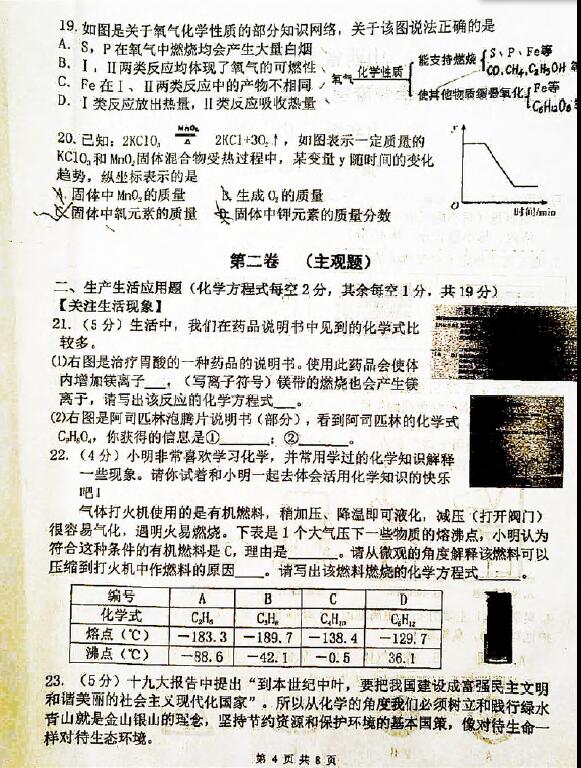 19. 如图是关于氧气化学性质的部分知识网络，关于该图说法正确的是
A. S，P在氧气中燃烧均会产生大量白烟
B. Ⅰ，Ⅱ两类反应均体现了氧气的可燃性
C. Fe在Ⅰ、Ⅱ两类反应中的产物不相同
D. Ⅰ类反应放出热量，Ⅱ类反应吸收热量
氧气 化学性质
能支持燃烧 S、P、Fe等
CO,CH₄,C₂H₅OH
使其他物质缓慢氧化 Fe等
C₆H₁₂O₆
20. 已知：2KClO₃ MnO₂ △ 2KCl+3O₂↑，如图表示一定质量的
KClO₃和MnO₂固体混合物受热过程中，某变量y随时间的变化
趋势，纵坐标表示的是
A. 固体中MnO₂的质量 B. 生成O₂的质量
C. 固体中氧元素的质量 D. 固体中钾元素的质量分数
y
0 时间/min
第二卷 （主观题）
二、生产生活应用题（化学方程式每空2分，其余每空1分，共19分）
【关注生活现象】
21.（5分）生活中，我们在药品说明书中见到的化学式比
较多。
(1)右图是治疗胃酸的一种药品的说明书。使用此药品会使体
内增加镁离子___，（写离子符号）镁带的燃烧也会产生镁
离子，请写出该反应的化学方程式___。
(2)右图是阿司匹林泡腾片说明书（部分），看到阿司匹林的化学式
C₉H₈O₄，你获得的信息是①______；②______。
22.（4分）小明非常喜欢学习化学，并常用学过的化学知识解释
一些现象。请你试着和小明一起去体会活用化学知识的快乐
吧！
气体打火机使用的是有机燃料，稍加压、降温即可液化，减压（打开阀门）
很容易气化，遇明火易燃烧。下表是1个大气压下一些物质的熔沸点，小明认为
符合这种条件的有机燃料是C，理由是______。请从微观的角度解释该燃料可以
压缩到打火机中作燃料的原因____。请写出该燃料燃烧的化学方程式______。
编号 A B C D
化学式 C₂H₆ C₃H₈ C₄H₁₀ C₅H₁₂
熔点（℃） －183.3 －189.7 －138.4 －129.7
沸点（℃） －88.6 －42.1 －0.5 36.1
23.（5分）十九大报告中提出“到本世纪中叶，要把我国建设成富强民主文明
和谐美丽的社会主义现代化国家”。所以从化学的角度我们必须树立和践行绿水
青山就是金山银山的理念，坚持节约资源和保护环境的基本国策，像对待生命一
样对待生态环境。
第 4 页 共 8 页